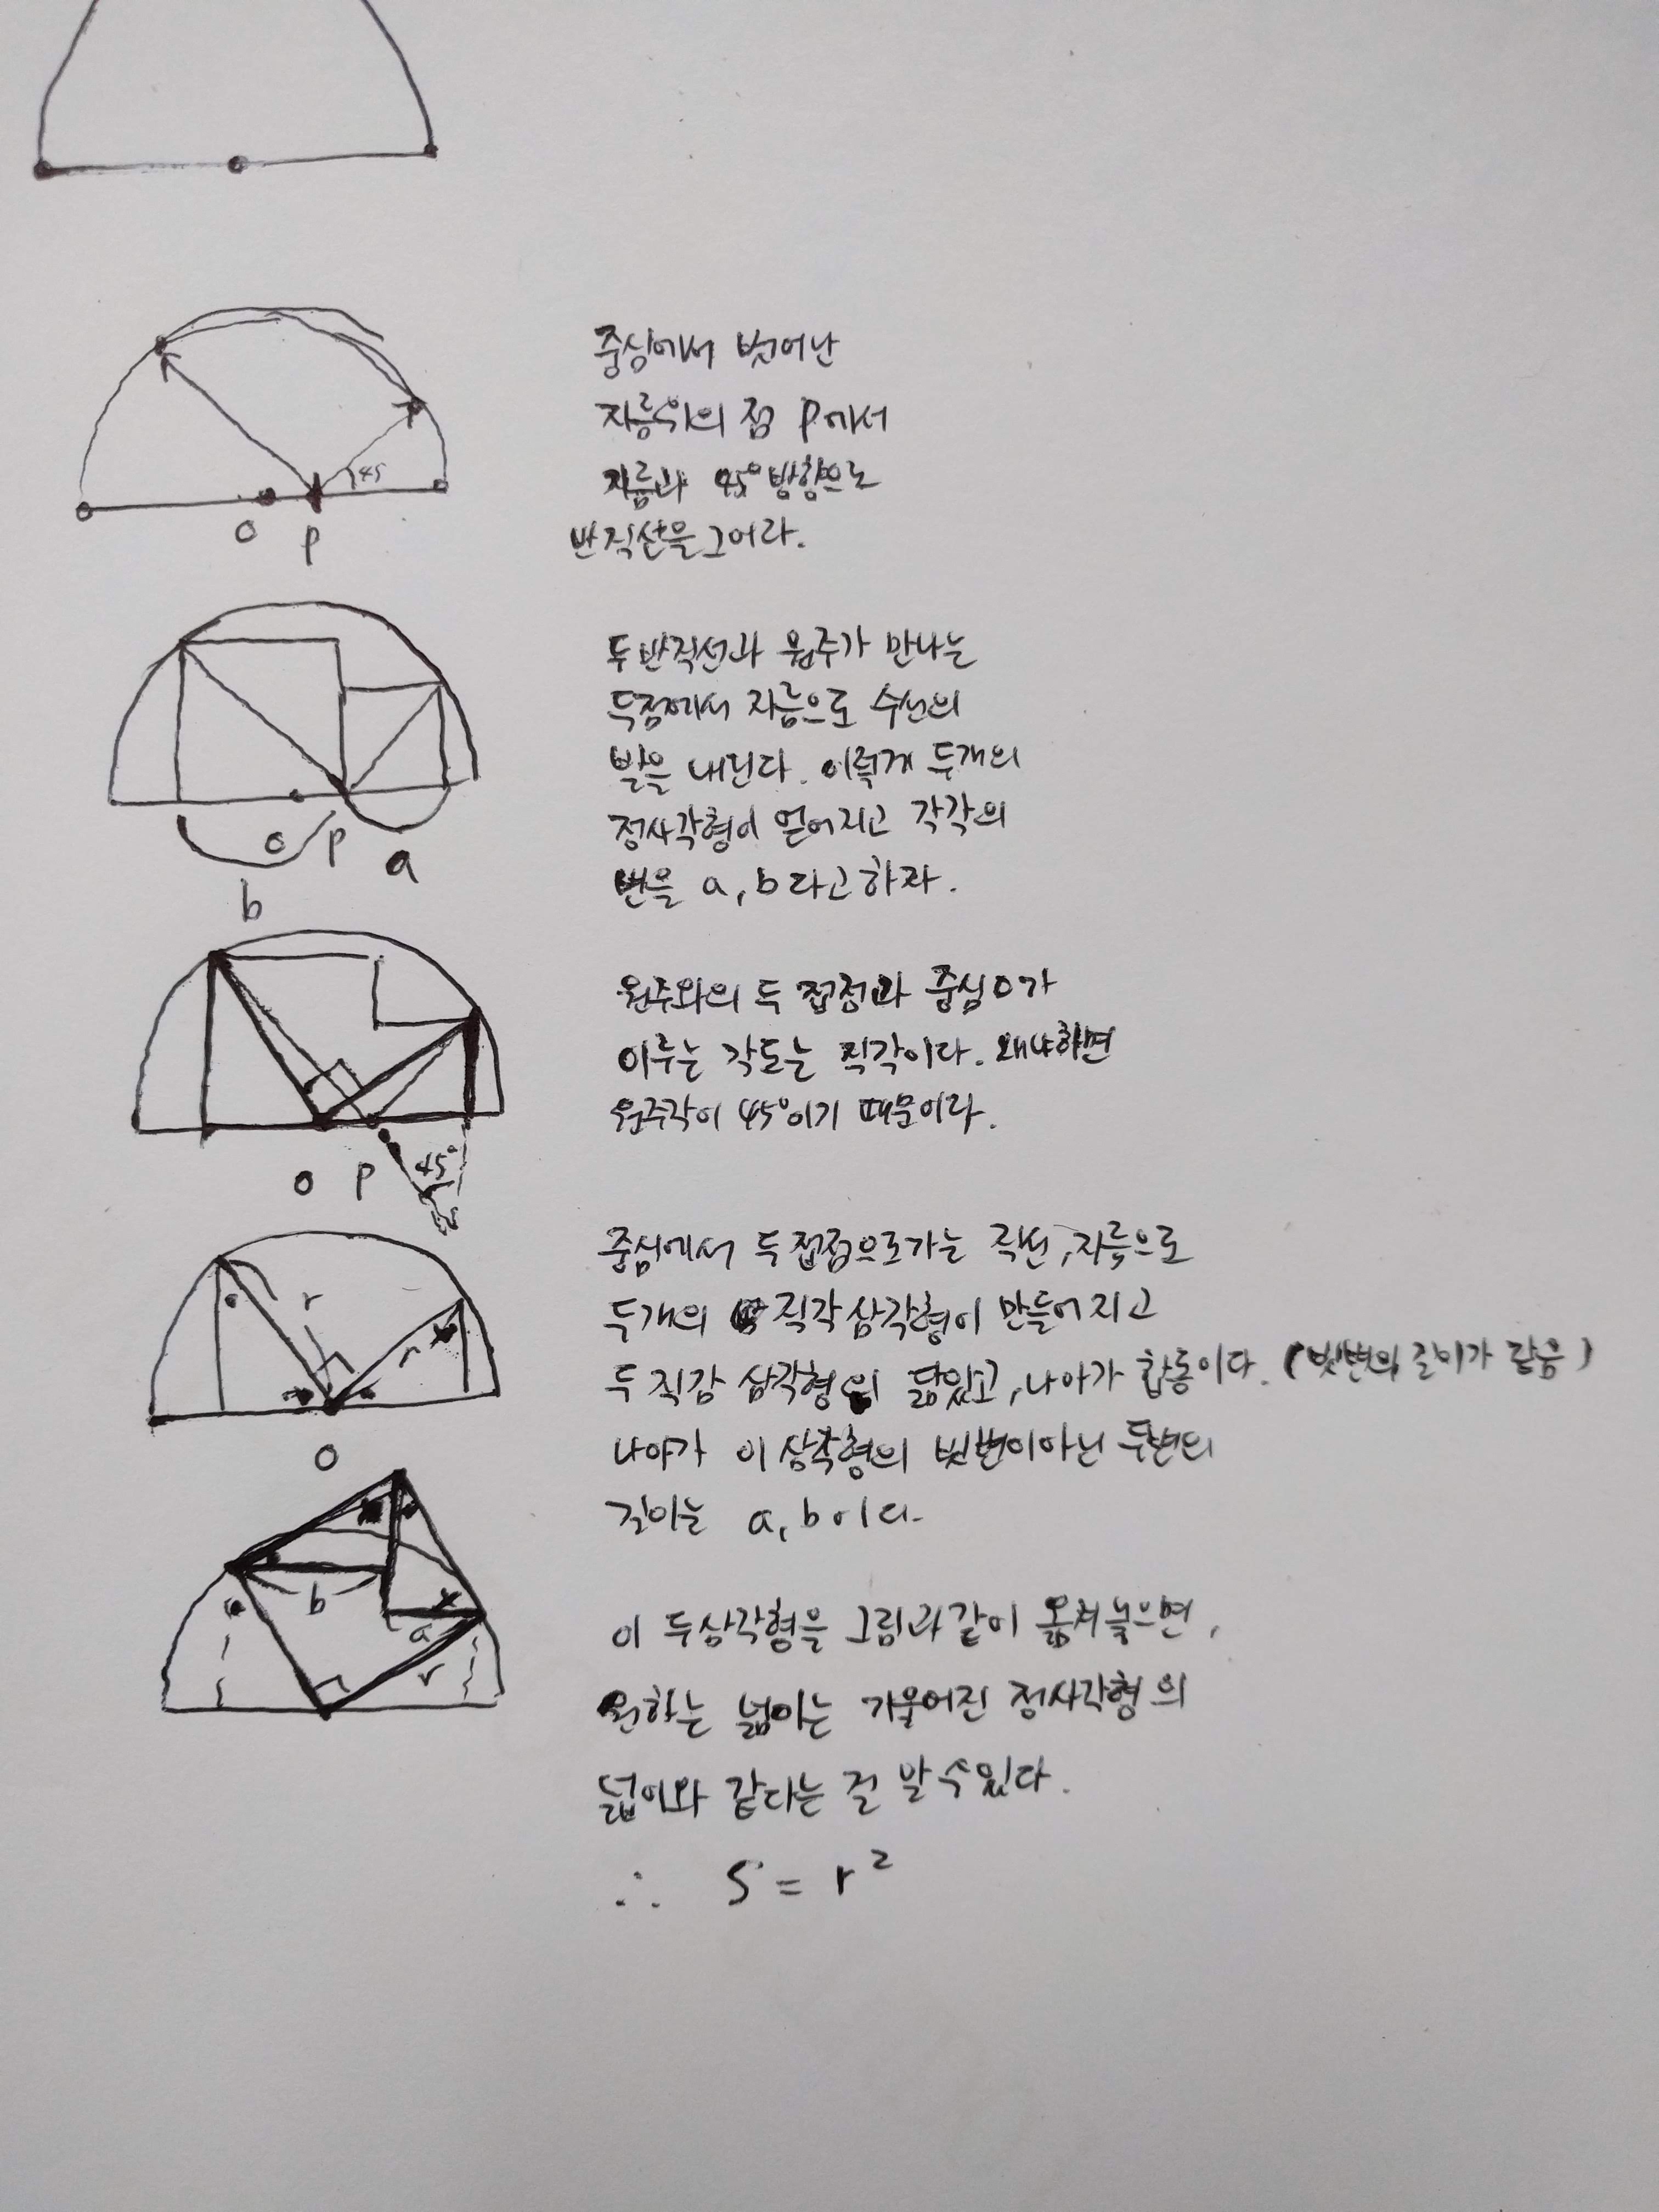 중심에서 벗어난
지름위의 점 P에서
지름과 45° 방향으로
반직선을 그어라.
45
O P
두 반직선과 원주가 만나는
두점에서 지름으로 수선의
발을 내린다. 이렇게 두개의
정사각형이 얻어지고 각각의
변을 a, b라고하자.
O P a
b
원주와의 두 접점과 중심O가
이루는 각도는 직각이다. 왜냐하면
원주각이 45°이기 때문이다.
O P 45°
중심에서 두 접점으로가는 직선, 지름으로
두개의 직각 삼각형이 만들어지고
두 직각 삼각형의 닮있고, 나아가 합동이다. (빗변의 길이가 같음)
나아가 이 삼각형의 빗변이아닌 두변의
길이는 a, b이다.
r r
O
이 두삼각형을 그림과같이 옮겨놓으면,
원하는 넓이는 기울어진 정사각형의
넓이와 같다는 걸 알수있다.
b a r
∴ S = r²